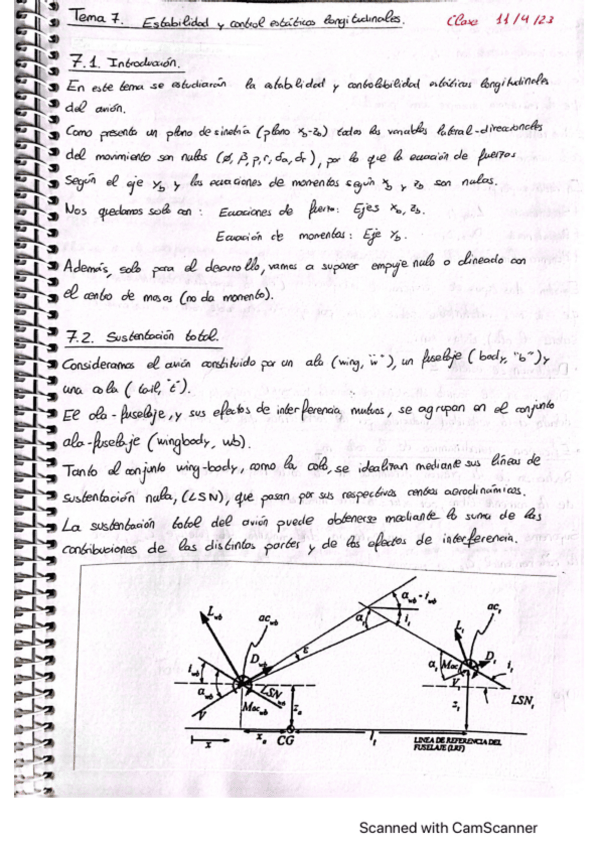 Tema 7. Estabilidad y control estáticos longitudinales. Clase 11/4/23
7.1. Introducción.
En este tema se estudiarán la estabilidad y controlabilidad estáticas longitudinales
del avión.
Como presenta un plano de simetría (plano x_b-z_b) todas las variables lateral-direccionales
del movimiento son nulas (φ, β, p, r, δa, δr), por lo que la ecuación de fuerzas
según el eje y_b y las ecuaciones de momentos según x_b y z_b son nulas.
Nos quedamos solo con: Ecuaciones de fuerza: Ejes x_b, z_b.
Ecuación de momentos: Eje y_b.
Además, solo para el desarrollo, vamos a suponer empuje nulo o alineado con
el centro de masas (no da momento).
7.2. Sustentación total.
Consideramos el avión constituido por un ala (wing, "w"), un fuselaje (body, "b") y
una cola (tail, "t").
El ala-fuselaje, y sus efectos de interferencia mutuos, se agrupan en el conjunto
ala-fuselaje (wingbody, wb).
Tanto el conjunto wing-body, como la cola, se idealizan mediante sus líneas de
sustentación nula, (LSN), que pasan por sus respectivos centros aerodinámicos.
La sustentación total del avión puede obtenerse mediante la suma de las
contribuciones de las distintas partes y de los efectos de interferencia.
L_wb ac_wb ε α_wb - i_wb α_t i_t L_t ac_t
i_wb D_wb D_t α_t Mac_t i_t
α_wb LSN_wb V_t LSN_t
V Mac_wb z_a z_t
x x_a CG l_t LINEA DE REFERENCIA DEL
FUSELAJE (LRF)
Scanned with CamScanner